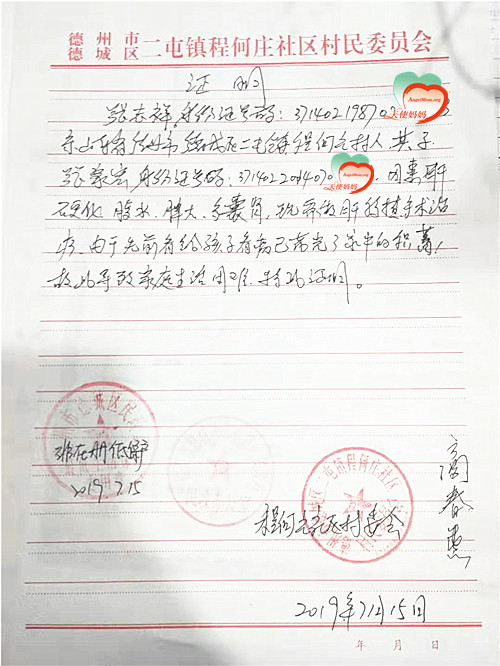 德州市
德城区 二屯镇程何庄社区村民委员会
证明
张志祥,身份证号码:371402198702
AngelMom.org
天使妈妈
系山东省德州市德城区二屯镇程何庄村人,其子
张家 身份证号码:371402201407
AngelMom.org
天使妈妈
,因患肝
硬化、腹水、脾大、多囊肾,现需做肝移植手术治
病,由于先前看给孩子看病已花光了家中的积蓄,
故此导致家庭生活困难,特此证明。
市德城区民
非在册低保户
2019.7.15
城区二屯镇程何庄社区
程何庄社区村委会
2019年7月15日
年 月 日